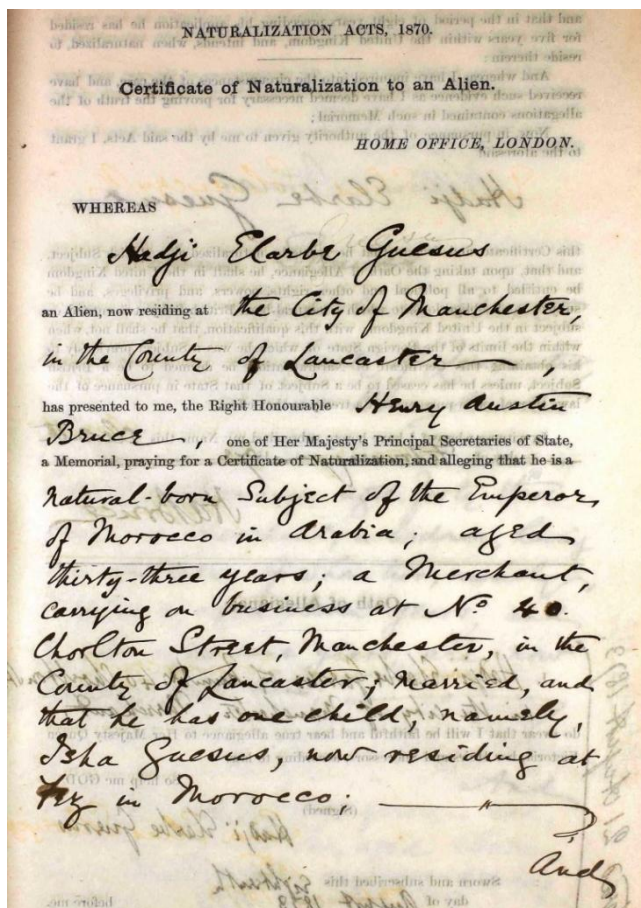 NATURALIZATION ACTS, 1870.
Certificate of Naturalization to an Alien.
HOME OFFICE, LONDON.
WHEREAS
Hadji Elarbe Guesus
an Alien, now residing at the City of Manchester,
in the County of Lancaster,
has presented to me, the Right Honourable Henry Austin
Bruce, one of Her Majesty's Principal Secretaries of State,
a Memorial, praying for a Certificate of Naturalization, and alleging that he is a
natural-born Subject of the Emperor
of Morocco in Arabia; aged
thirty-three years; a Merchant,
carrying on business at No 40.
Chorlton Street, Manchester, in the
County of Lancaster; married, and
that he has one child, namely,
Isha Guesus, now residing at
Fez in Morocco;
And